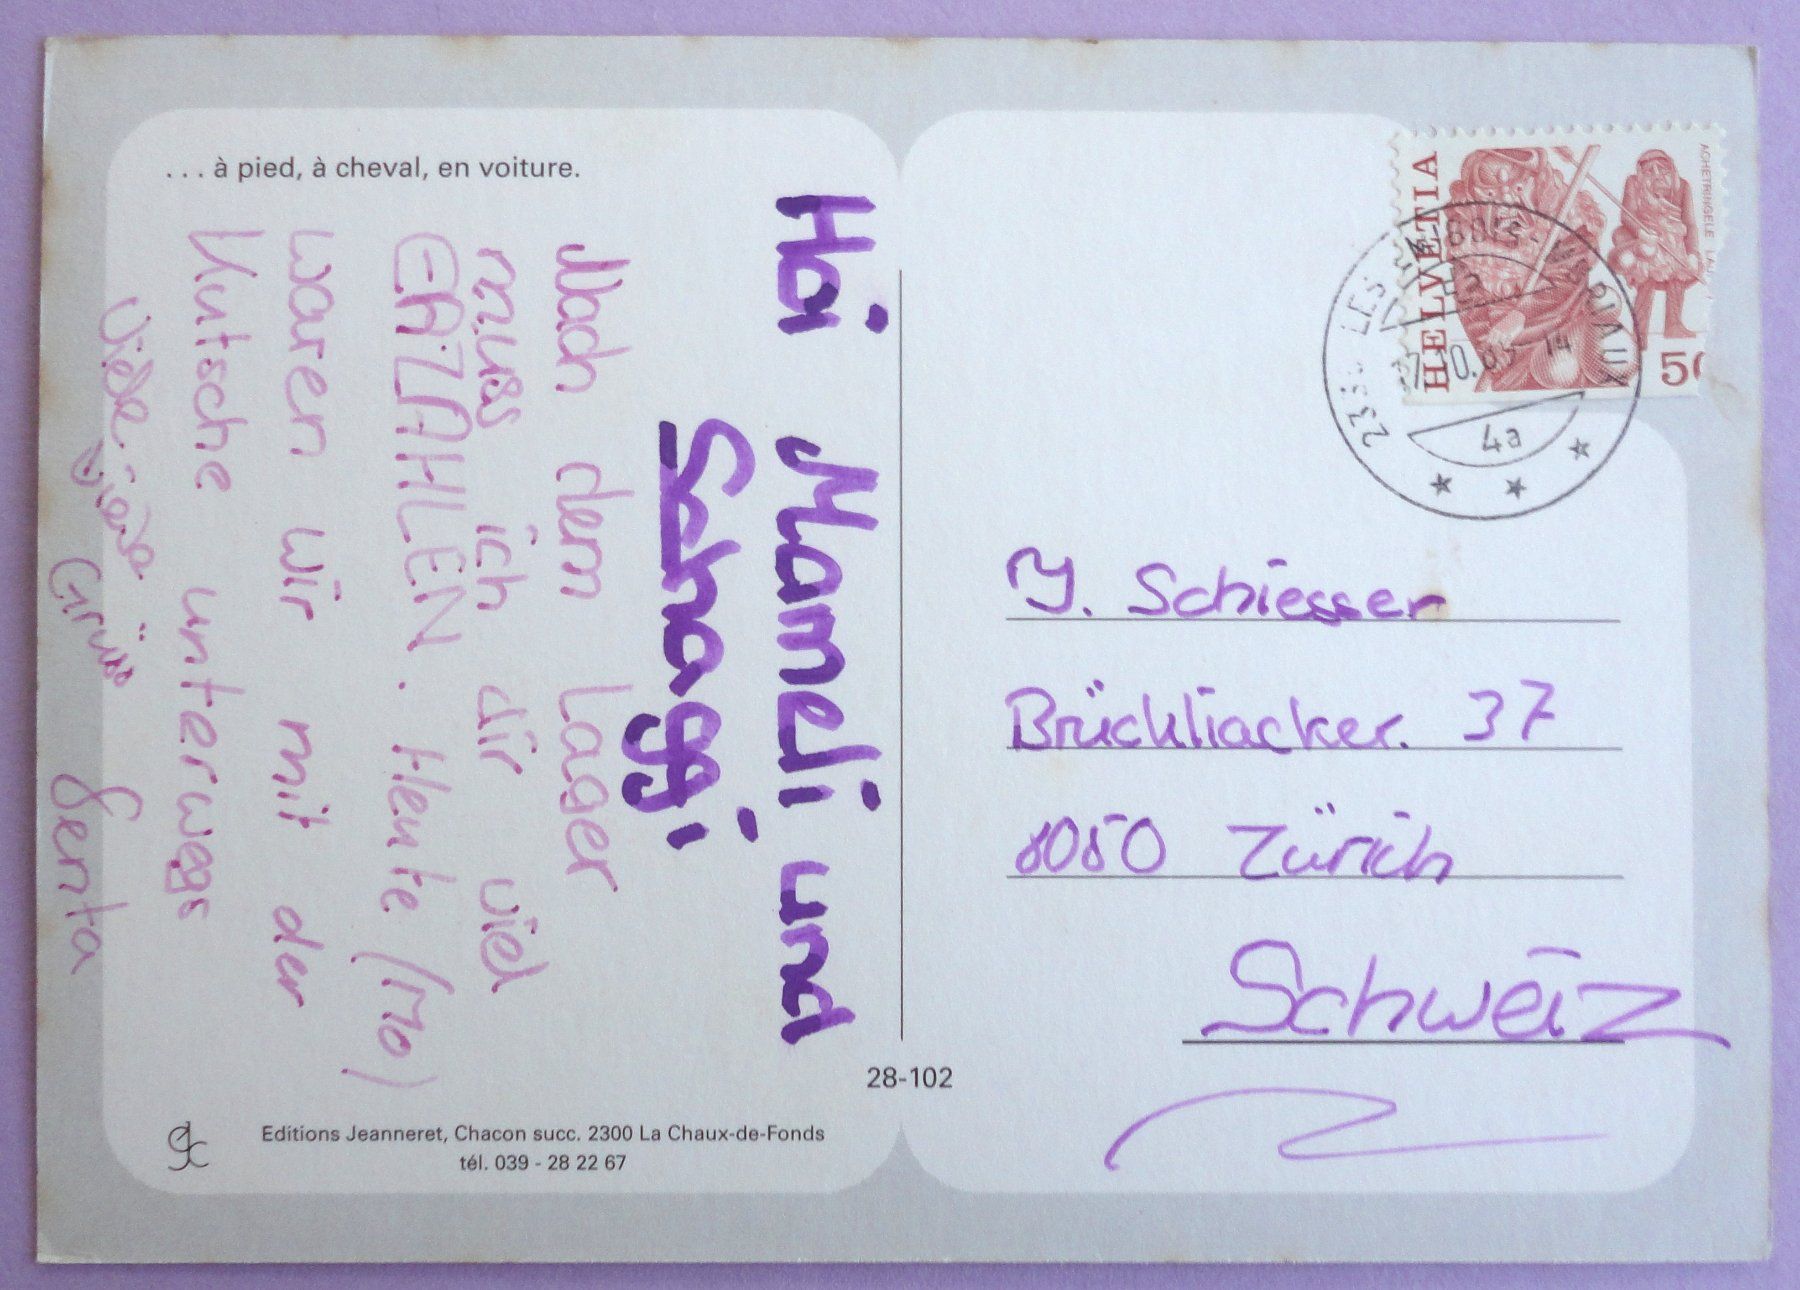 . . . à pied, à cheval, en voiture.
Hoi Mameli und
Schaggi
Nach dem Lager
muss ich dir viel
EAZÄHLEN. Heute (Mo)
waren wir mit der
Kutsche unterwegs
viele, viele
Grüss Senta
28-102
Editions Jeanneret, Chacon succ. 2300 La Chaux-de-Fonds
tél. 039 - 28 22 67
HELVETIA
ACHETRINGELE
50
4a
Y. Schiesser
Brückliacker. 37
8050 Zürich
Schweiz